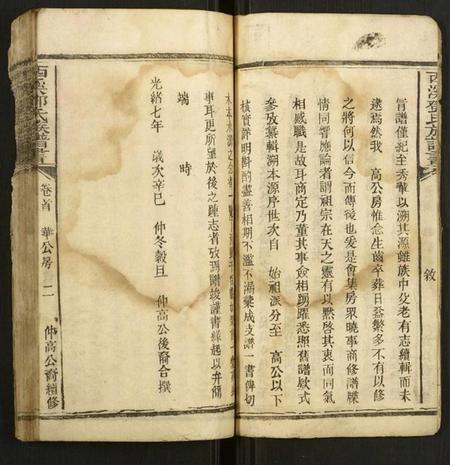 西溪鄧氏族譜書
敘
旨譜僅紀至秀華以溯其源雖族中父老有志續輯而未
逮焉然我 高公房惟念生齒卒葬日益繁多不有以修
之將何以信今而傳後也爰是會集房眾曉事商修譜牒
情同響應論者謂祖宗在天之靈有以默啓其衷而同氣
相感職是故耳商定乃董其事僉相踴躍悉照舊譜欵式
參攷纂輯溯本源序世次自 始祖派分至 高公以下
核實詳明斟酌盡善相期不濫不漏彙成支譜一書俾切
木本水源之念者一覽
事耳更所望於後之踵志者攷舊關竣謹書緣起以弁簡
端 時
光緒七年 歲次辛巳 仲冬穀旦 仲高公後裔合撰
西溪鄧氏族譜書 卷首 華公房 二 仲高公裔續修